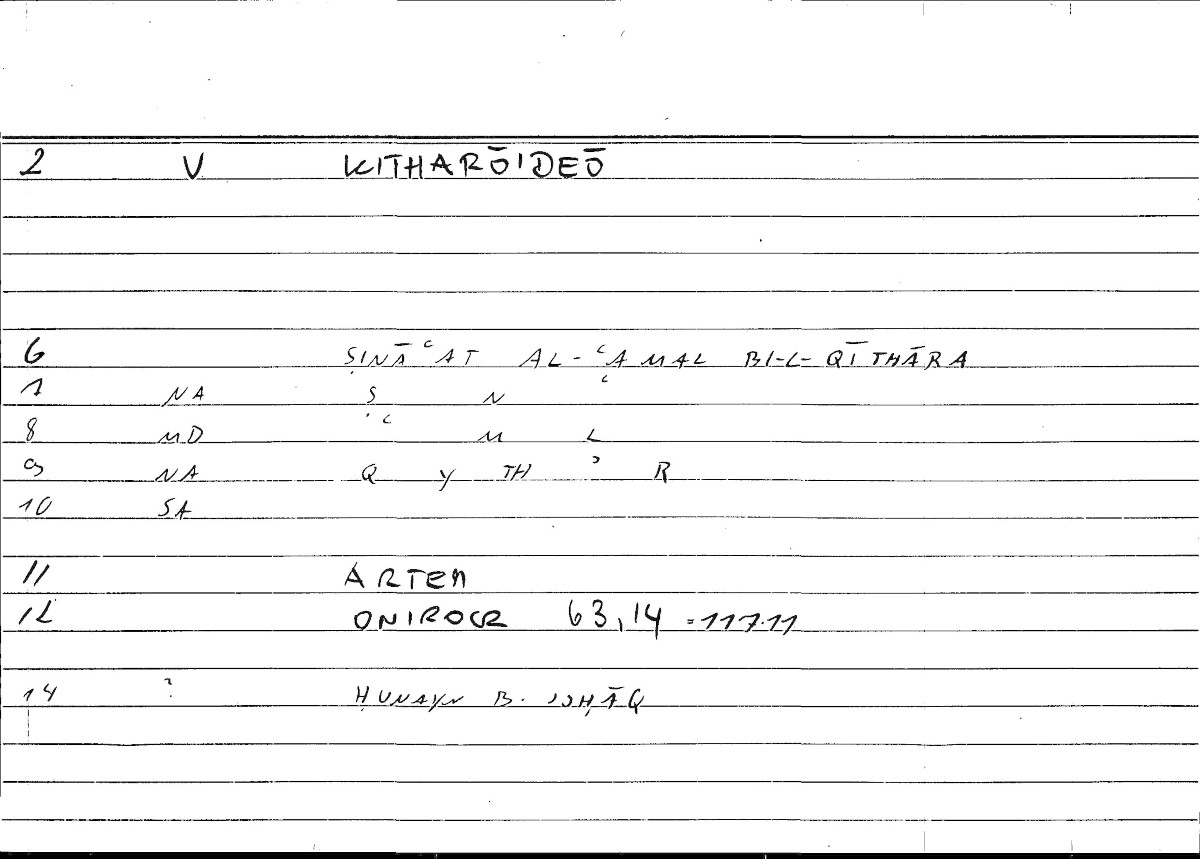 2 V KITHARŌIDEŌ
6 ṢINĀʿAT AL-ʿAMAL BI-L-QĪTHĀRA
1 NA Ṣ N ʿ
8 MD ʿ M L
9 NA Q Y TH ʾ R
10 SA
11 ARTEM
12 ONIROCR 63,14 = 117.11
14 ? ḤUNAYN B. ISḤĀQ